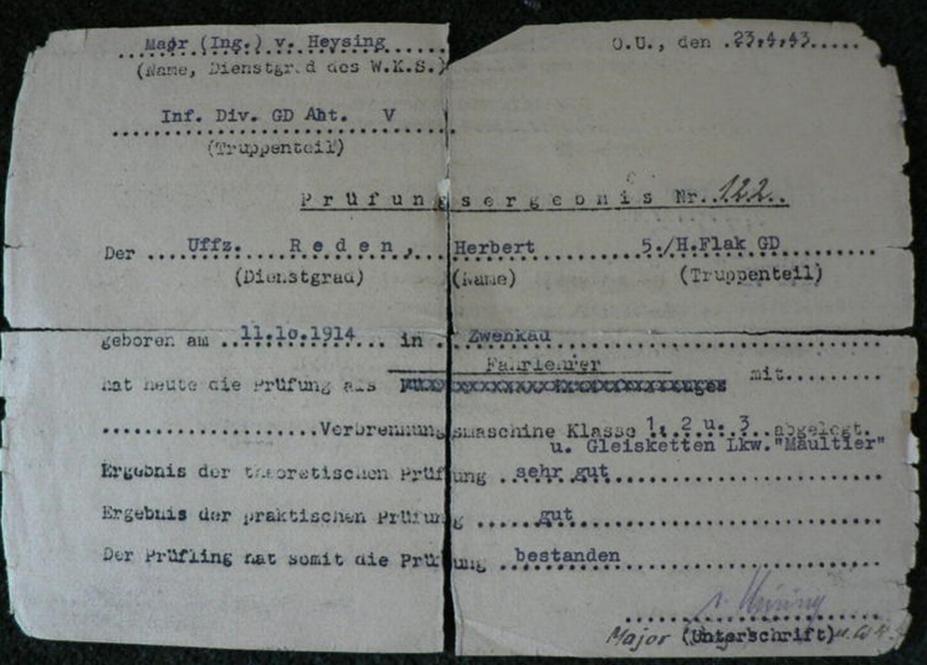 Major (Ing.) v. Heysing O.U., den .23.4.43.....
(Name, Dienstgrad des W.K.S.)
Inf. Div. GD Abt. V
(Truppenteil)
Prüfungsergebnis Nr. 122.
Der Uffz. Reden, Herbert 5./H.Flak GD
(Dienstgrad) (Name) (Truppenteil)
geboren am 11.10.1914 in Zwenkau
Fahrlehrer
hat heute die Prüfung als mit
Verbrennungsmaschine Klasse 1, 2 u. 3 abgelegt.
u. Gleisketten Lkw."Maultier"
Ergebnis der theoretischen Prüfung sehr gut
Ergebnis der praktischen Prüfung gut
Der Prüfling hat somit die Prüfung bestanden
Major (Unterschrift)